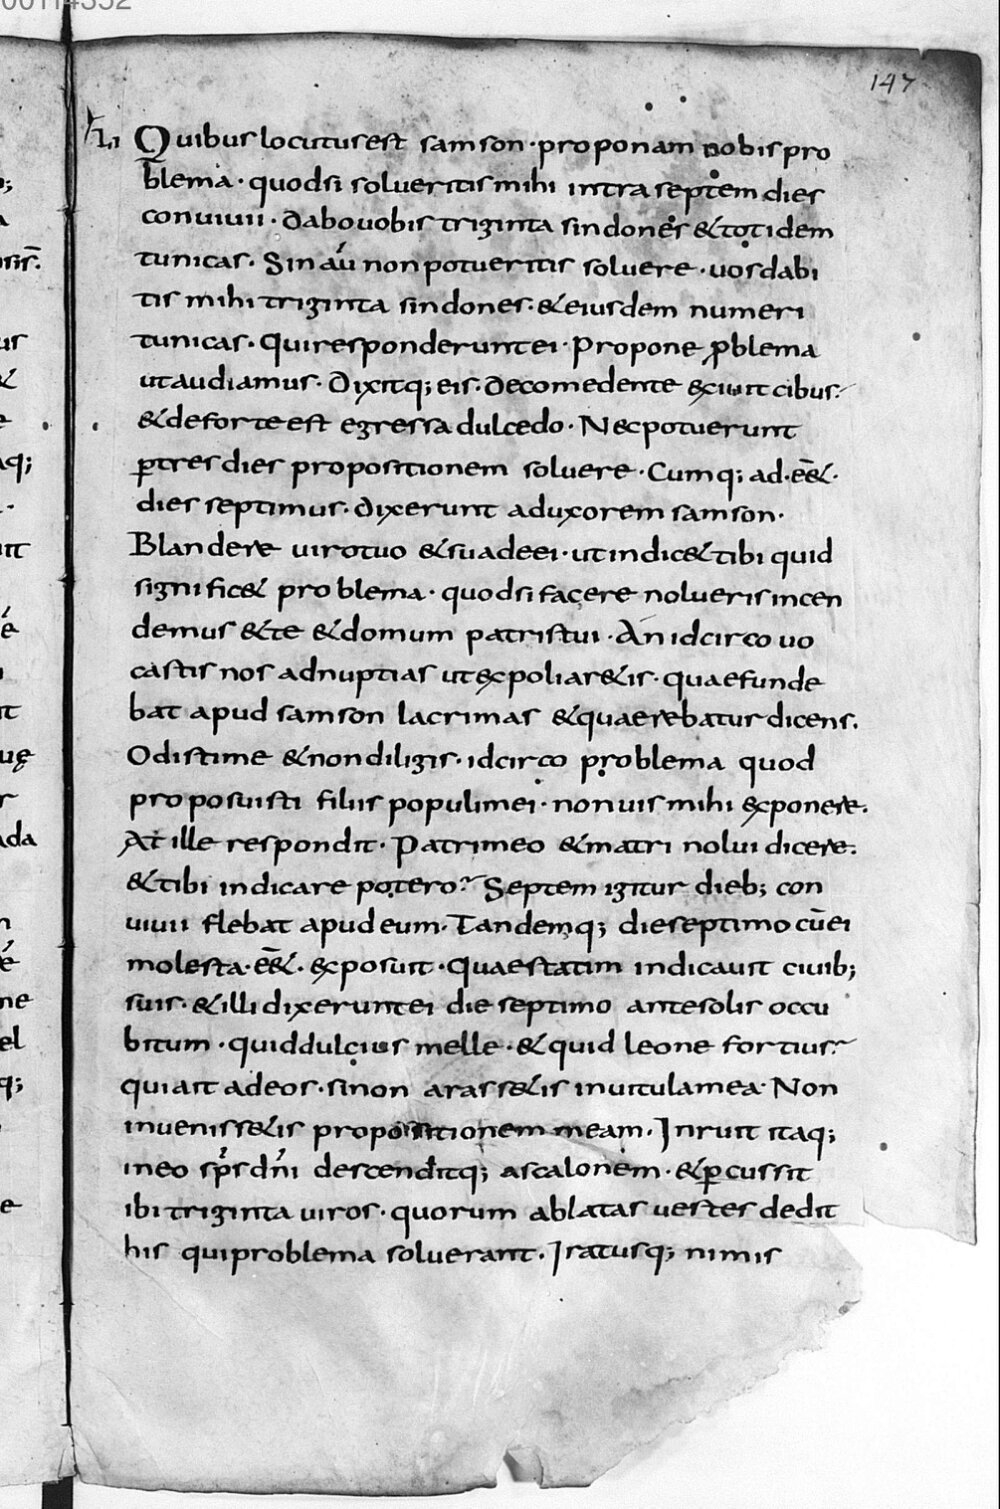 147
Quibus locutus est samson · proponam vobis pro
blema · quodsi solueritis mihi intra septem dies
conuiuii · dabo uobis triginta sindones & totidem
tunicas · Sin aū non potueritis soluere · uos dabi
tis mihi triginta sindones · & eiusdem numeri
tunicas · Qui responderunt ei · Propone ꝓblema
ut audiamus · Dixitq; eis · De comedente exiuit cibus ·
& de forte est egressa dulcedo · Nec potuerunt
ꝑ tres dies propositionem soluere · Cumq; ad·eē&·
dies septimus · dixerunt ad uxorem samson ·
Blandere uiro tuo & suade ei · ut indic& tibi quid
signific& problema · quodsi facere nolueris incen
demus & te & domum patris tui · An idcirco uo
castis nos ad nuptias ut expoliar&is · quae funde
bat apud samson lacrimas & quaerebatur dicens.
Odisti me & non diligis · idcirco problema quod
proposuisti filiis populi mei · non uis mihi exponere.
At ille respondit · Patri meo & matri nolui dicere.
& tibi indicare potero? Septem igitur dieb; con
uiuii flebat apud eum · Tandemq; die septimo cū ei
molesta·eē&· exposuit · Quae statim indicauit ciuib;
suis · & illi dixerunt ei die septimo ante solis occu
bitum · quid dulcius melle · & quid leone fortius?
qui ait ad eos · si non arass&is in uitula mea · Non
inueniss&is propositionem meam · Inruit itaq;
in eo sp̄s dn̄i descenditq; ascalonem · & ꝑcussit
ibi triginta uiros · quorum ablatas uestes dedit
his qui problema soluerant · Iratusq; nimis